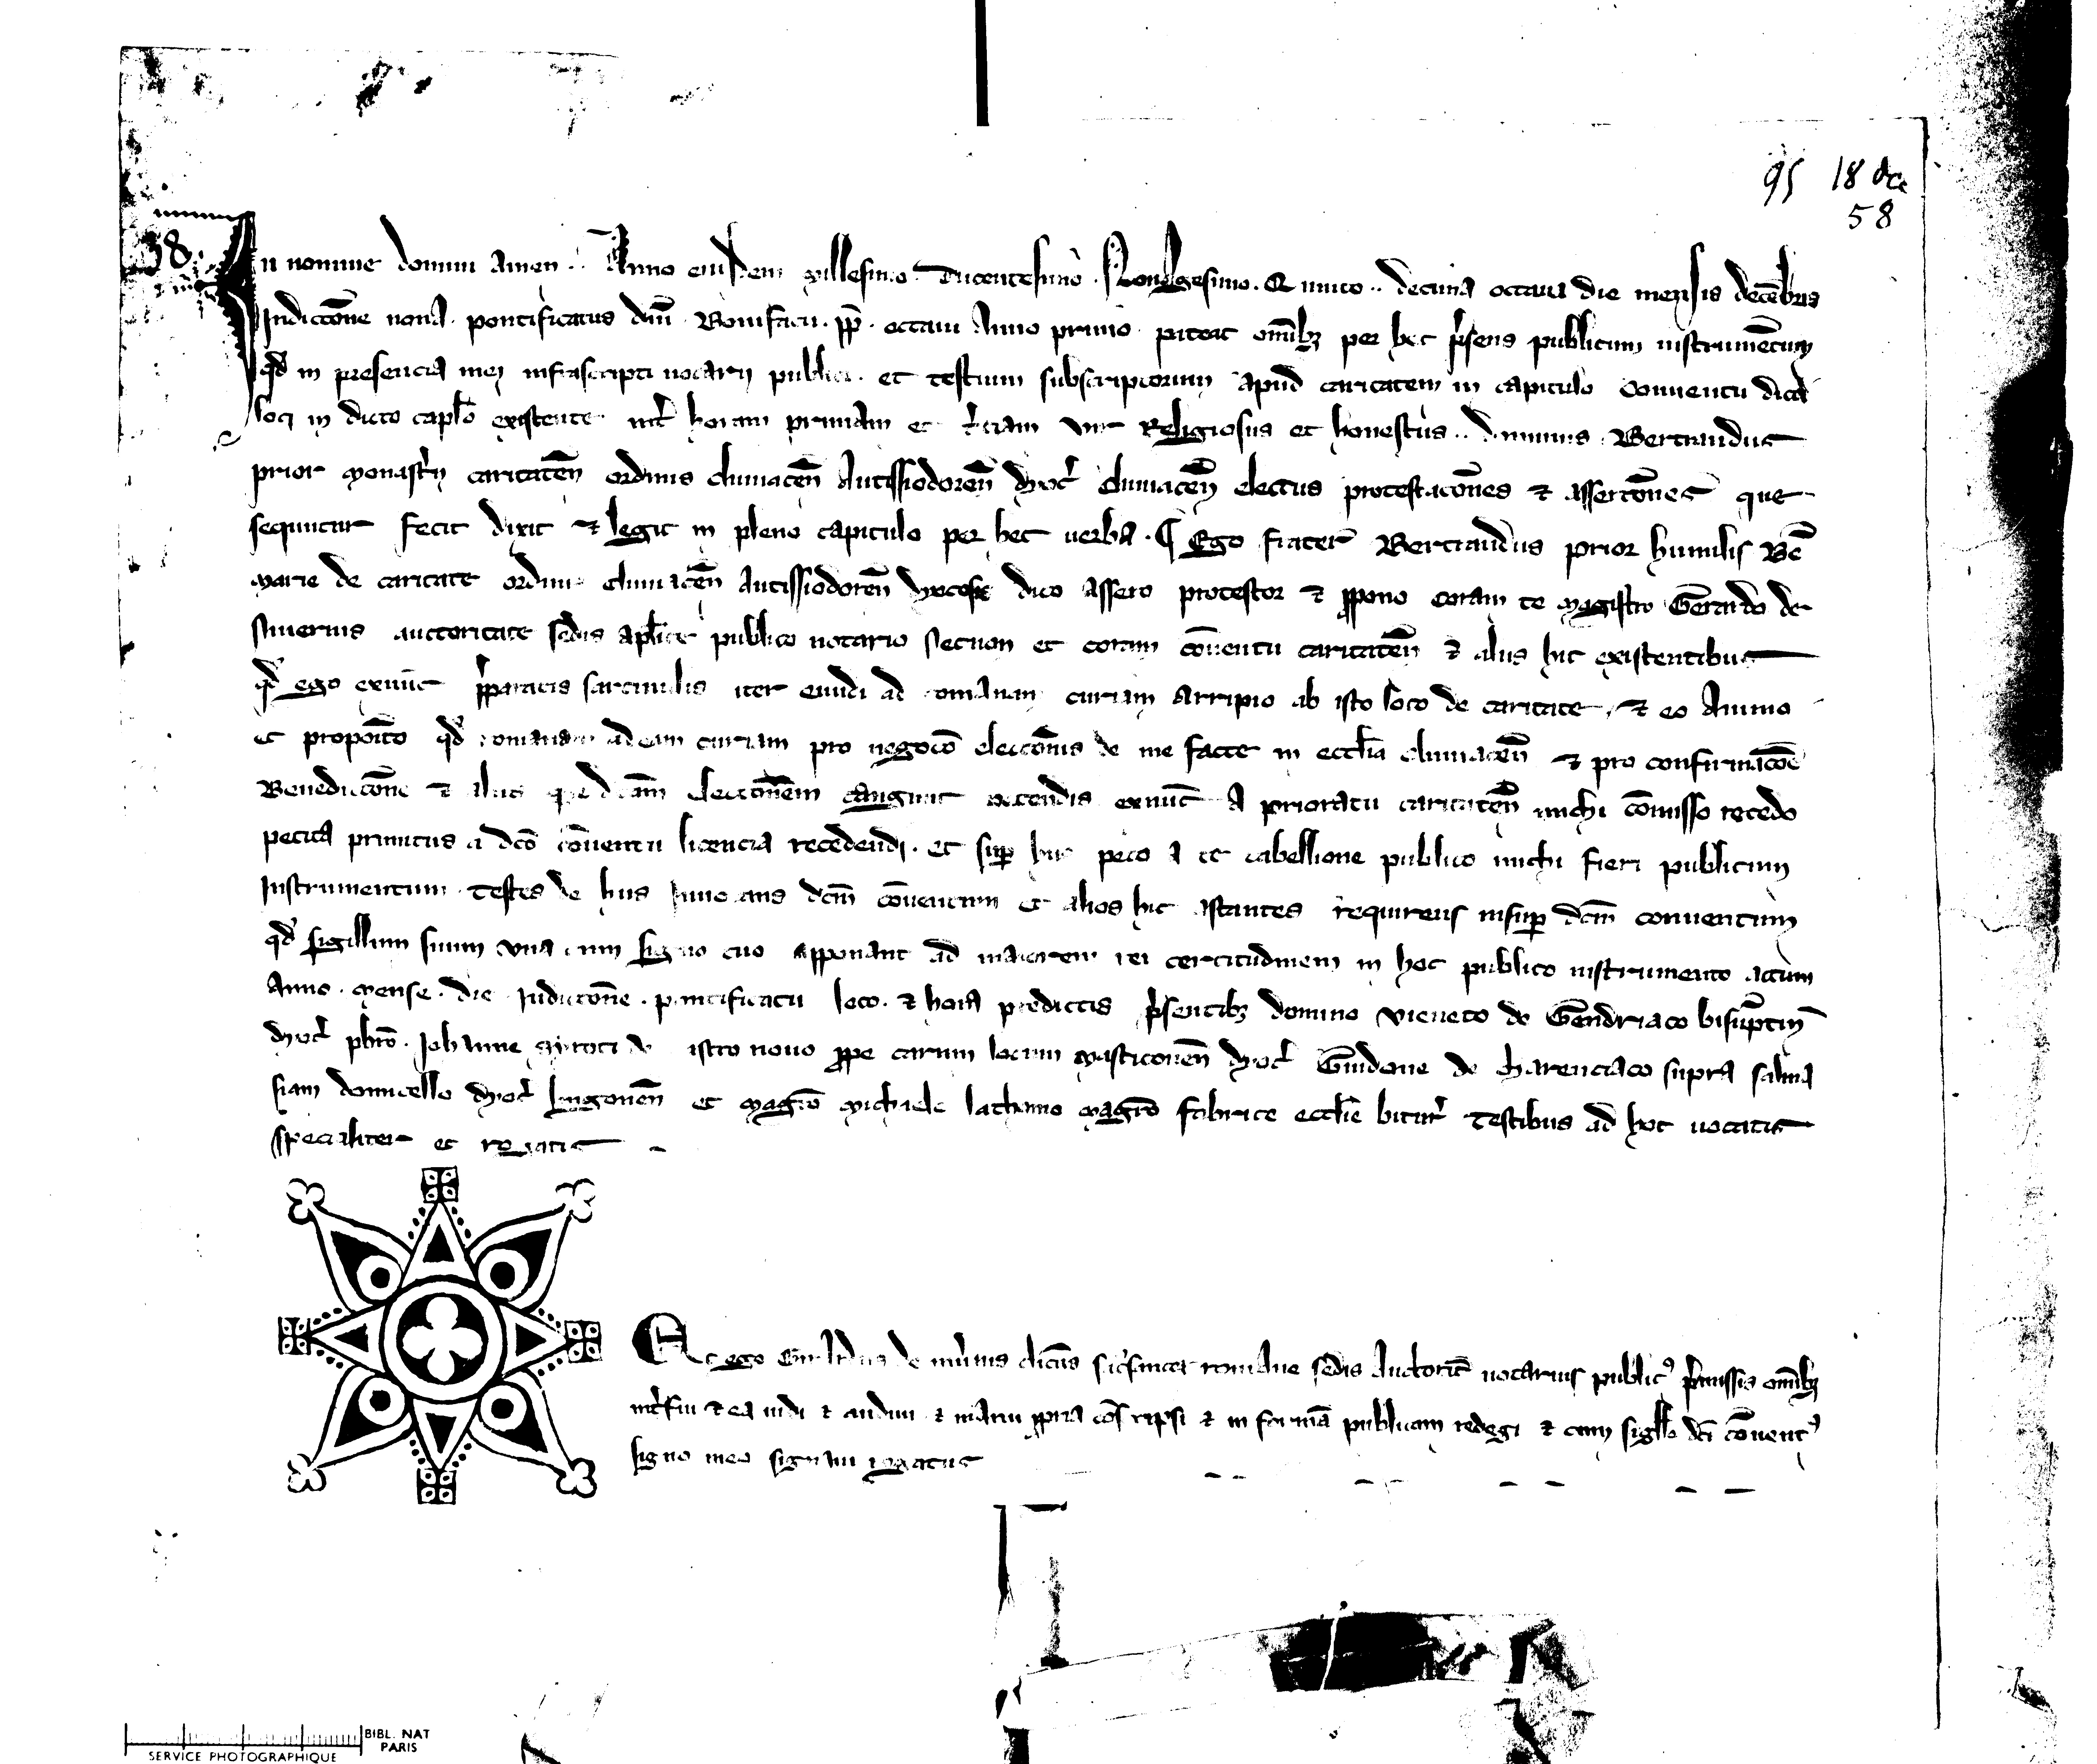 95 18 dec
58
38.
In nomine domini amen.. Anno eiusdem millesimo. Ducentesimo. Nonagesimo. Quinto.. decima octaua die mensis decēbris
Indictōne nona. pontificatus dn̄i. Bonifacii. pp̄. octaui Anno primo. pateat om̄ibȝ per hoc p̄sens publicum instrumētum
qd̄ in presencia mei infrascripti notarij publici. et testium subscriptorum apud caritatem in capitulo Conuentu dicti
loci in dicto cap̄lo existente int̄ horam primam et t̄ciam vir Religiosus et honestus.. dominus. Bertrandus
prior monast̄ij caritateñ ordinis cluniaceñ Autissiodoreñ dyoc̄ cluniaceñ electus protestacōnes ⁊ assertōnes que
sequntur fecit dixit ⁊ legit in pleno capitulo per hec uerba. ¶ Ego frater Bertrandus prior humilis Bē
marie de caritate ordinis cluniaceñ Autissiodoreñ dyocesis dico assero protestor ⁊ ꝓpono coram te magistro Gerardo de
niuernis auctoritate sedis apl̄ice publico notario necnon et coram cōuentu caritateñ ⁊ aliis hic existentibus
qd̄ ego exnūc p̄paratis sarcinulis iter eundi ad romanam curiam arripio ab isto loco de caritate, ⁊ eo Animo
et propoīto qd̄ romanam adeam curiam pro negocō electōnis de me facte in eccl̄ia cluniaceñ ⁊ pro confirmacōe
Benedictōne ⁊ aliis que dc̄am electōnem tangunt petendis exnūc A prioratu caritateñ michi cōmisso recedo
petita primitus a dc̄o cōuentu licencia recedendi. et sup̄ hiis peto a te tabellione publico michi fieri publicum
Instrumentum testes de hiis Inuocans dc̄m cōuentum et alios hic astantes requirens insup̄ dc̄m conuentum
qd̄ sigillum suum vna cum signo tuo apponant ad maiorem rei certitudinem in hoc publico instrumento actum
Anno. mense. die Indictōne. pontificatu loco. ⁊ hora predictis p̄sentibȝ domino vieneto de Gendriaco bisuptiñ
dyoc̄ pbr̄o. Johanne de castro nouo ꝓpe carum locum masticoneñ dyoc̄ Guidone de charenciaco supra salma
siam domicello dyoc̄ lingoneñ et magr̄o michaele lathomo magr̄o fabrice eccl̄ie bitur̄ testibus ad hoc uocatis
specialiter et rogatis
Et ego Girardus de niu̅nis dictus romane sedis Auctorit̄ notarius publicꝰ p̄missis om̄ibȝ
int̄fui ⁊ ea uidi ⁊ audiui ⁊ manu ꝓpria cōscripsi ⁊ in formā publicam redegi ⁊ cum sigillo dc̄i cōuentꝰ
signo meo signaui rogatus
BIBL. NAT
PARIS
SERVICE PHOTOGRAPHIQUE